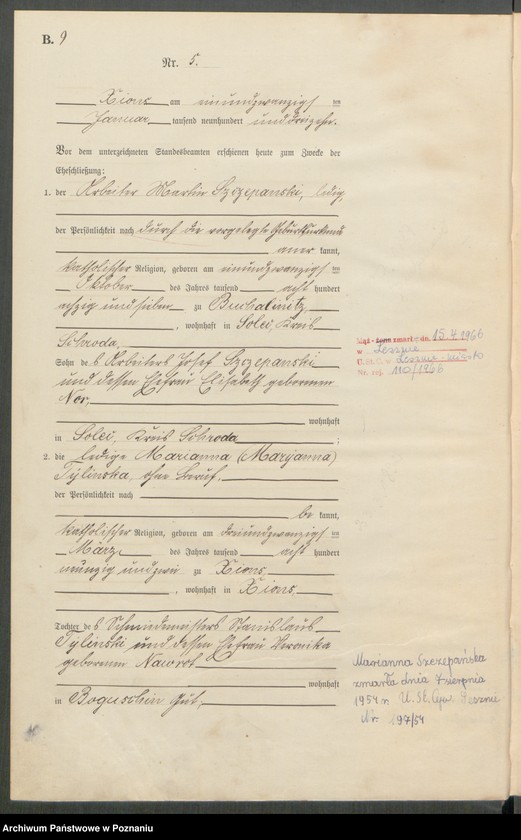 B. 9
Nr. 5.
Xions am einundzwanzigs ten
Januar tausend neunhundert und dreizehn.
Vor dem unterzeichneten Standesbeamten erschienen heute zum Zwecke der
Eheschließung:
1. der Arbeiter Martin Szczepanski, ledig,
der Persönlichkeit nach durch die vorgelegte Geburtsurkunde
aner kannt,
katholischer Religion, geboren am einundzwanzigs ten
Oktober des Jahres tausend acht hundert
achzig und sieben zu
, wohnhaft in Solec, Kreis
Schroda,
Sohn des Arbeiters Josef Szczepanski
und dessen Ehefrau Elisabeth geborenen
Ner,
wohnhaft
in Solec, Kreis Schroda ;
2. die ledige Marianna (Maryanna)
Tylinska, ohne Beruf,
der Persönlichkeit nach
be kannt,
katholischer Religion, geboren am dreiundzwanzigs ten
März des Jahres tausend acht hundert
neunzig und zwei zu Xions,
, wohnhaft in Xions,
Tochter des Schmiedemeisters Stanislaus
Tylinski und dessen Ehefrau Veronika
geborenen Nawrot
wohnhaft
in Boguschin Gut,
Mąż - żona zmarł dn. 15.4.1966
w Lesznie
U.S.C. w Leszno - miasto
Nr. akt 110/1966
Marianna Szczepańska
zmarła dnia 7 sierpnia
1954 r. U. St. Cyw. Lesznie
Nr. 197/54
Archiwum Państwowe w Poznaniu